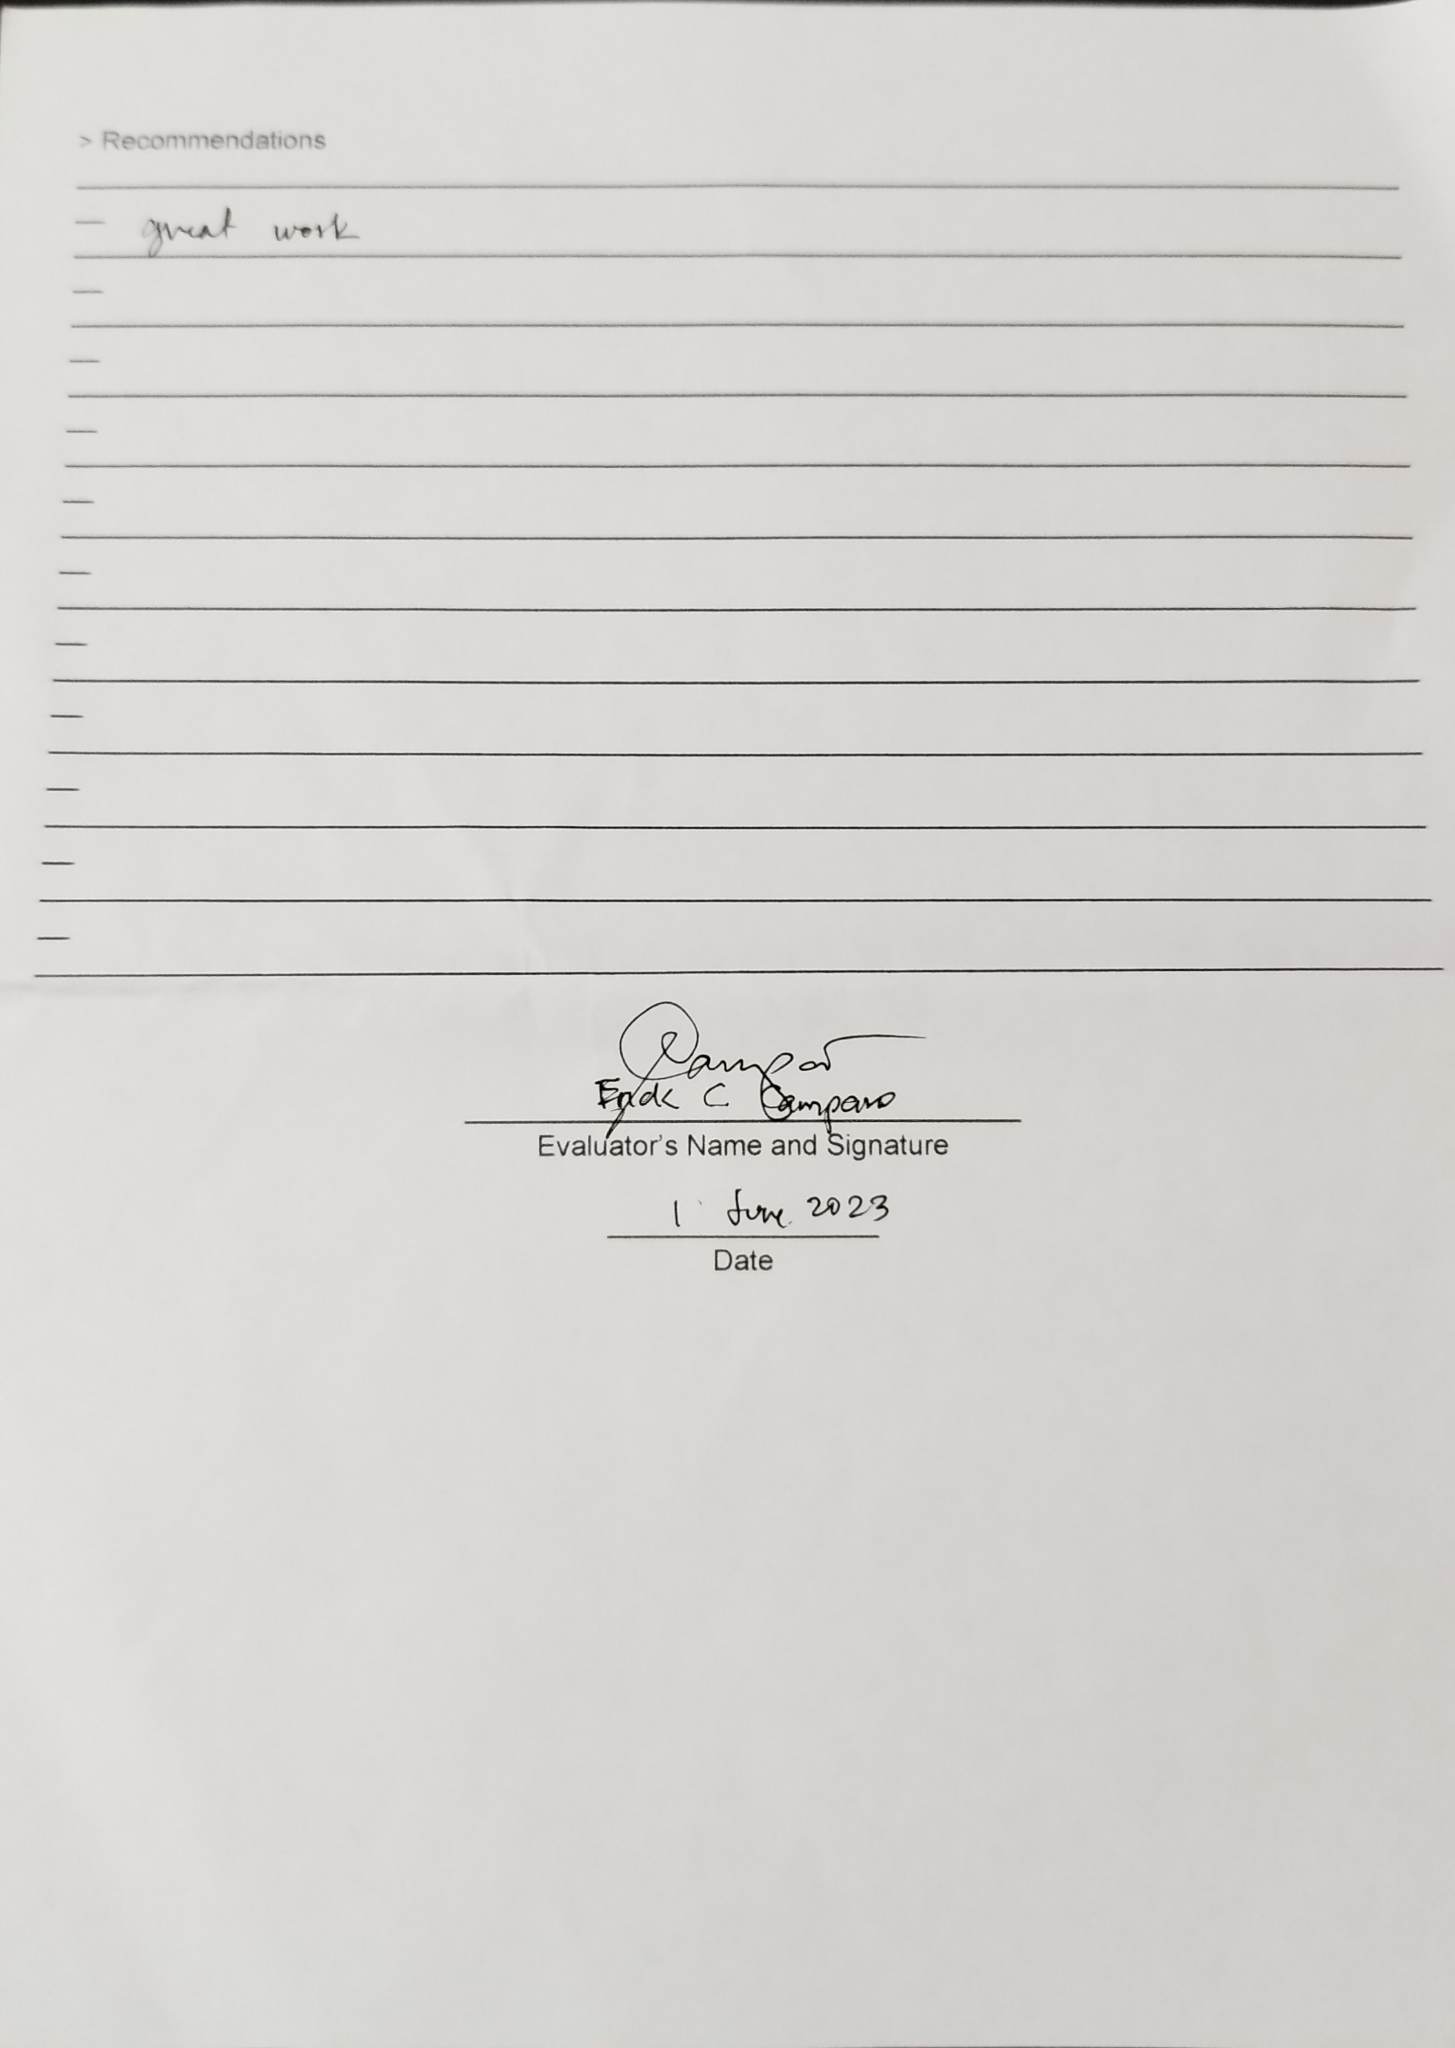 > Recommendations
great work
C Camparo
Evaluator's Name and Signature
1 June 2023
Date